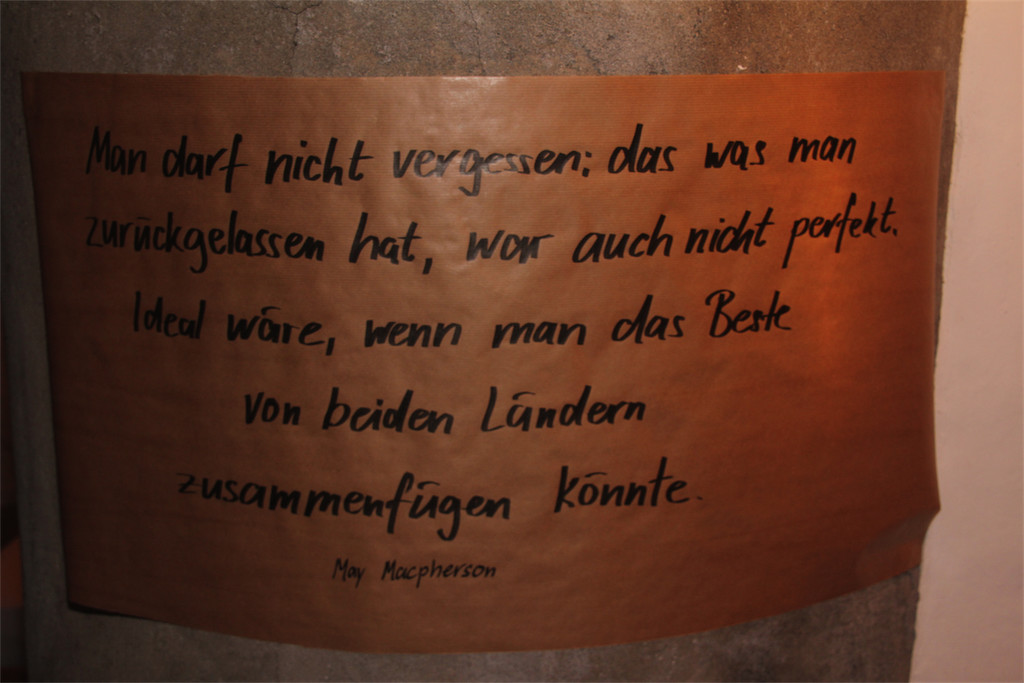 Man darf nicht vergessen: das was man
zurückgelassen hat, war auch nicht perfekt.
Ideal wäre, wenn man das Beste
von beiden Ländern
zusammenfügen könnte.
May Macpherson